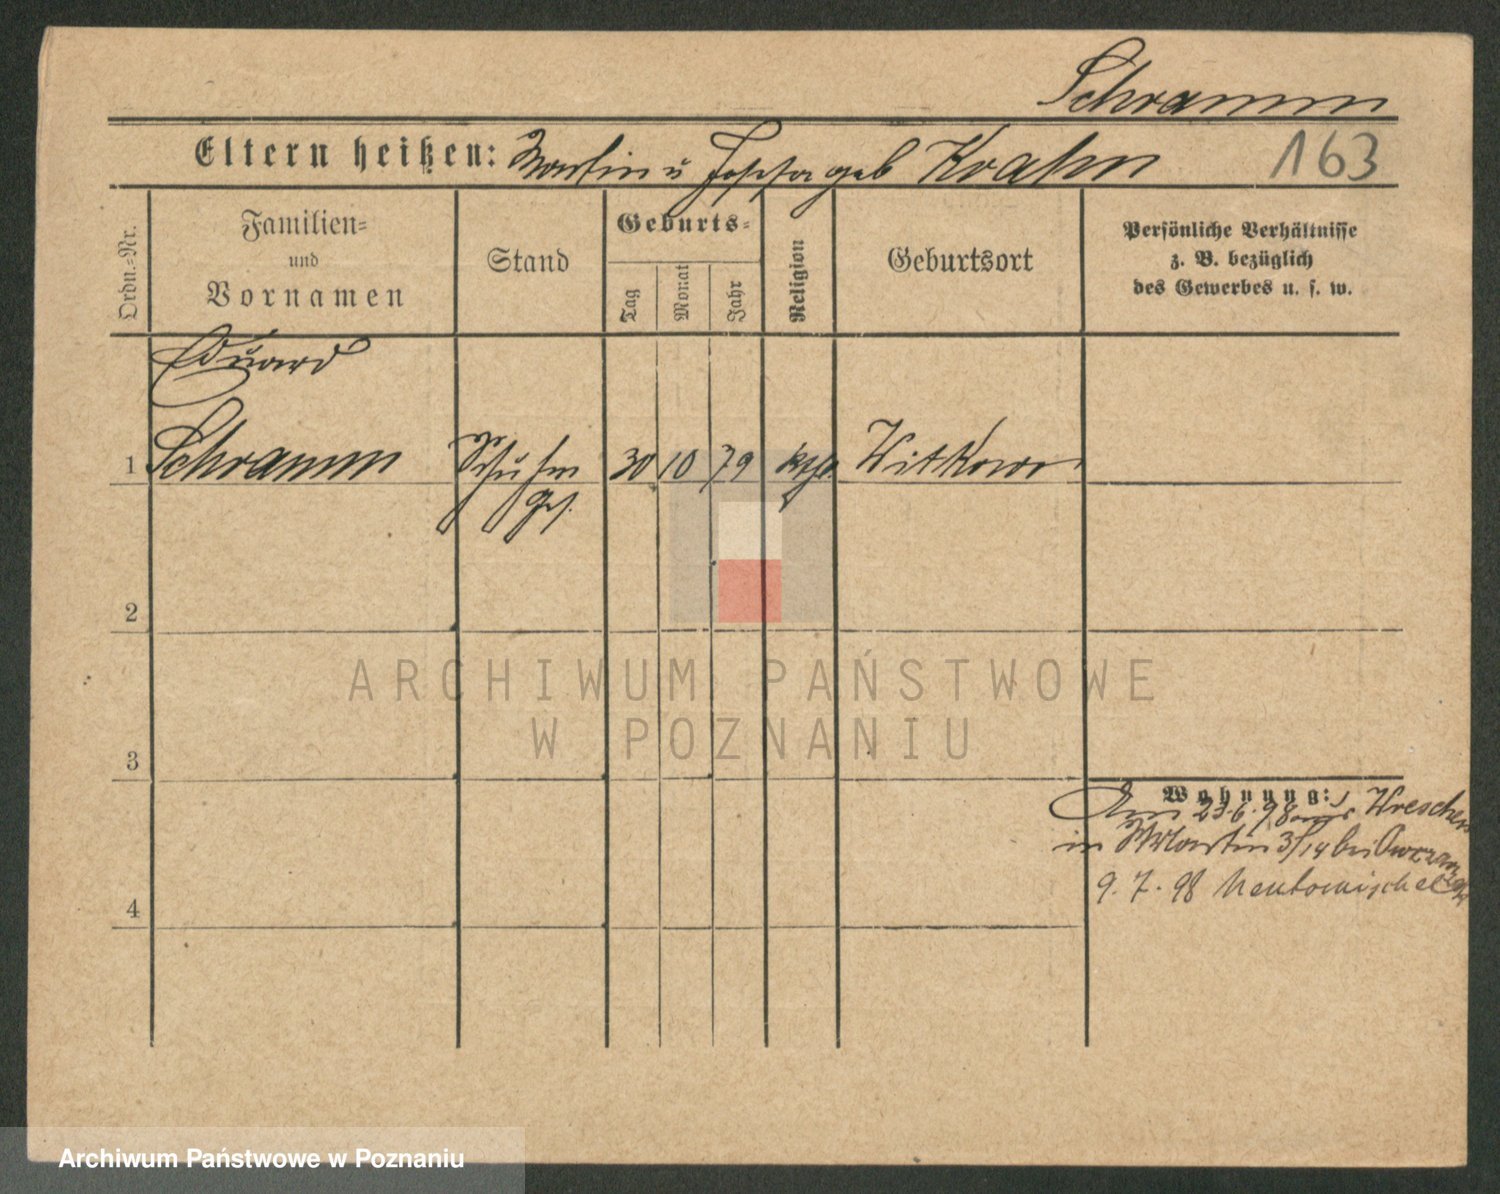 Schramm
163
Eltern heißen: Martin u Josefa geb Krahn
Ordn.=Nr.
Familien=
und
Vornamen
Stand
Geburts=
Tag
Monat
Jahr
Religion
Geburtsort
Persönliche Verhältnisse
z. B. bezüglich
des Gewerbes u. s. w.
Eduard
1 Schramm Schuhm 30 10 79 kth Witkowo
ges.
2
3
4
Wohnung:
Am 23.6.98 aus Wreschen
in Martin 3/14 bei
9.7.98 Neutomischel
ARCHIWUM PAŃSTWOWE
W POZNANIU
Archiwum Państwowe w Poznaniu